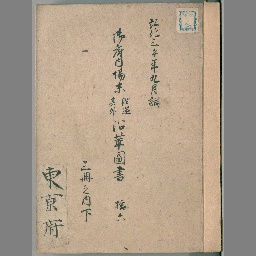 弘化三丙午年九月調
御府内場末往還
其外
沿革圖書
拾六
三冊之内下
東京府